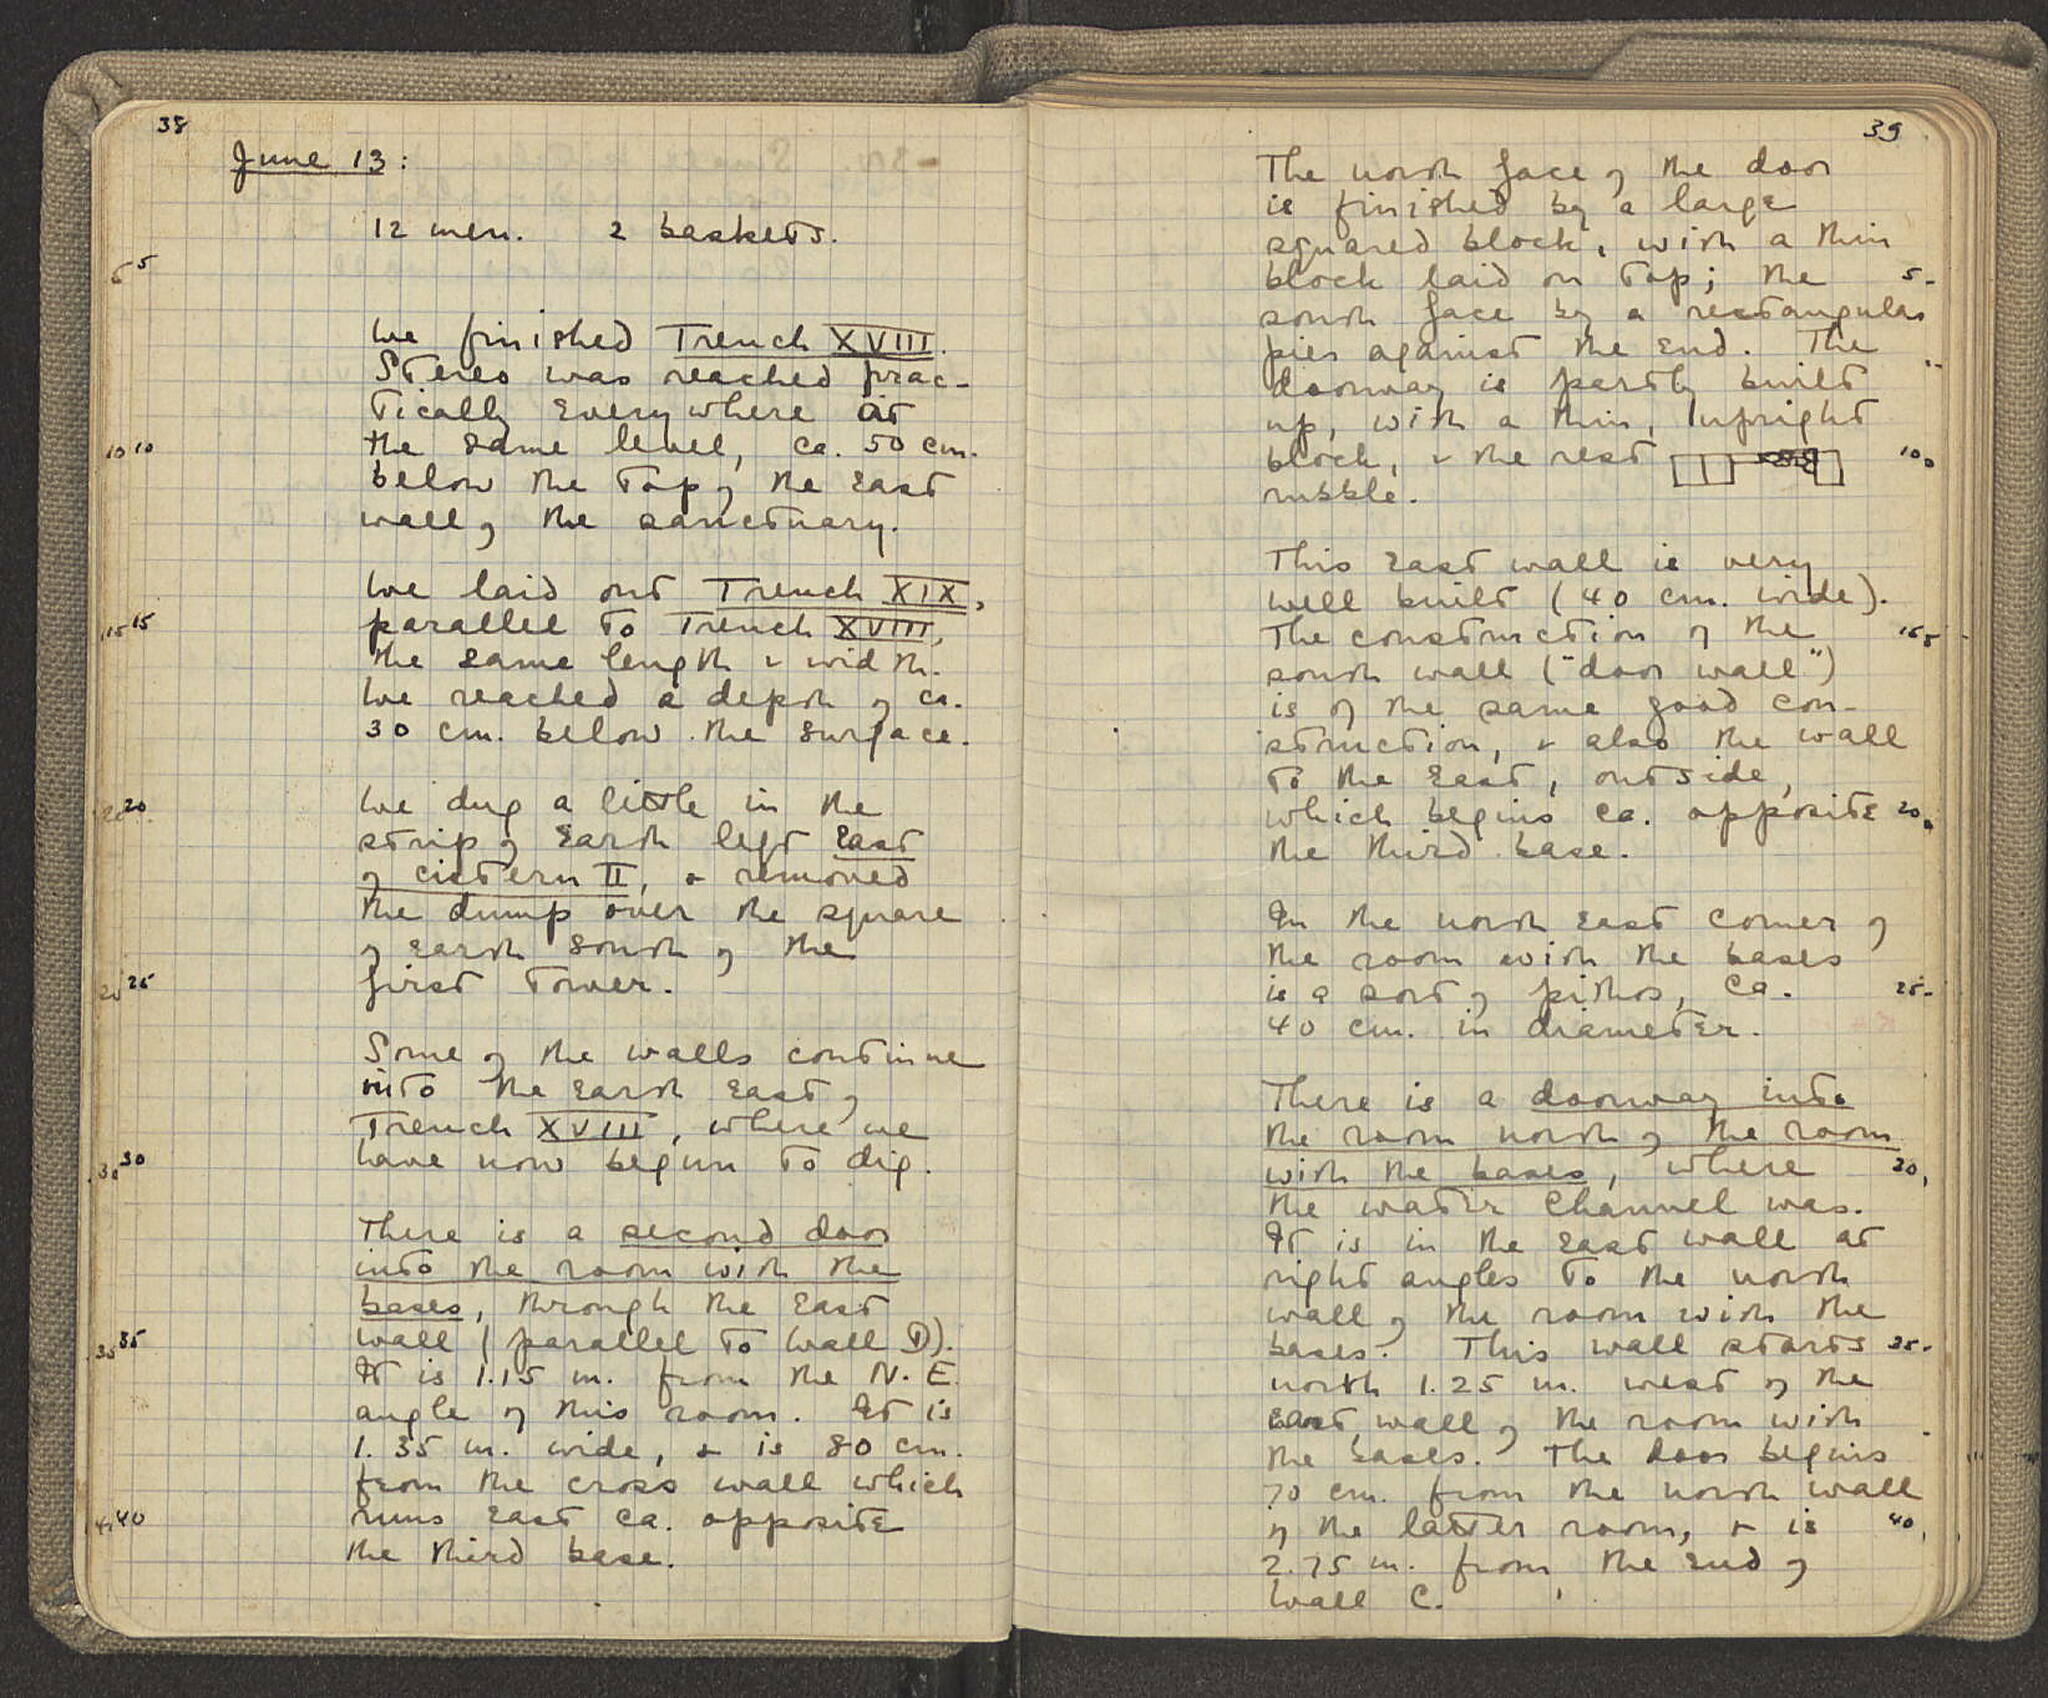 38
June 13:
12 men. 2 baskets.
5
We finished Trench XVIII.
Stereo was reached prac-
tically everywhere at
the same level, ca. 50 cm.
10
below the top of the East
wall of the sanctuary.
We laid out Trench XIX,
parallel to Trench XVIII,
15
the same length & width.
We reached a depth of ca.
30 cm. below the surface.
We dug a little in the
20
strip of earth left East
of cistern II, & removed
the dump over the square
of earth south of the
first tower.
25
Some of the walls continue
into the earth East of
Trench XVIII, where we
have now begun to dig.
30
There is a second door
into the room with the
bases, through the East
wall (parallel to Wall D).
35
It is 1.15 m. from the N.E.
angle of this room. It is
1.35 m. wide, & is 80 cm.
from the cross wall which
runs East ca. opposite
40
the third base.
39
The north face of the door
is finished by a large
squared block, with a thin
block laid on top; the
5
south face by a rectangular
pier against the end. The
doorway is partly built
up, with a thin, upright
block, & the rest
10
rubble.
This East wall is very
well built (40 cm. wide).
The construction of the
15
south wall ("door wall")
is of the same good con-
struction, & also the wall
to the East, outside,
which begins ca. opposite
20
the third base.
In the north east corner of
the room with the bases
is a sort of pithos, ca.
25
40 cm. in diameter.
There is a doorway into
the room north of the room
with the bases, where
30
the water channel was.
It is in the East wall at
right angles to the north
wall of the room with the
bases. This wall starts
35
north 1.25 m. west of the
East wall of the room with
the bases. The door begins
70 cm. from the north wall
of the latter room, & is
40
2.75 m. from the end of
Wall C.